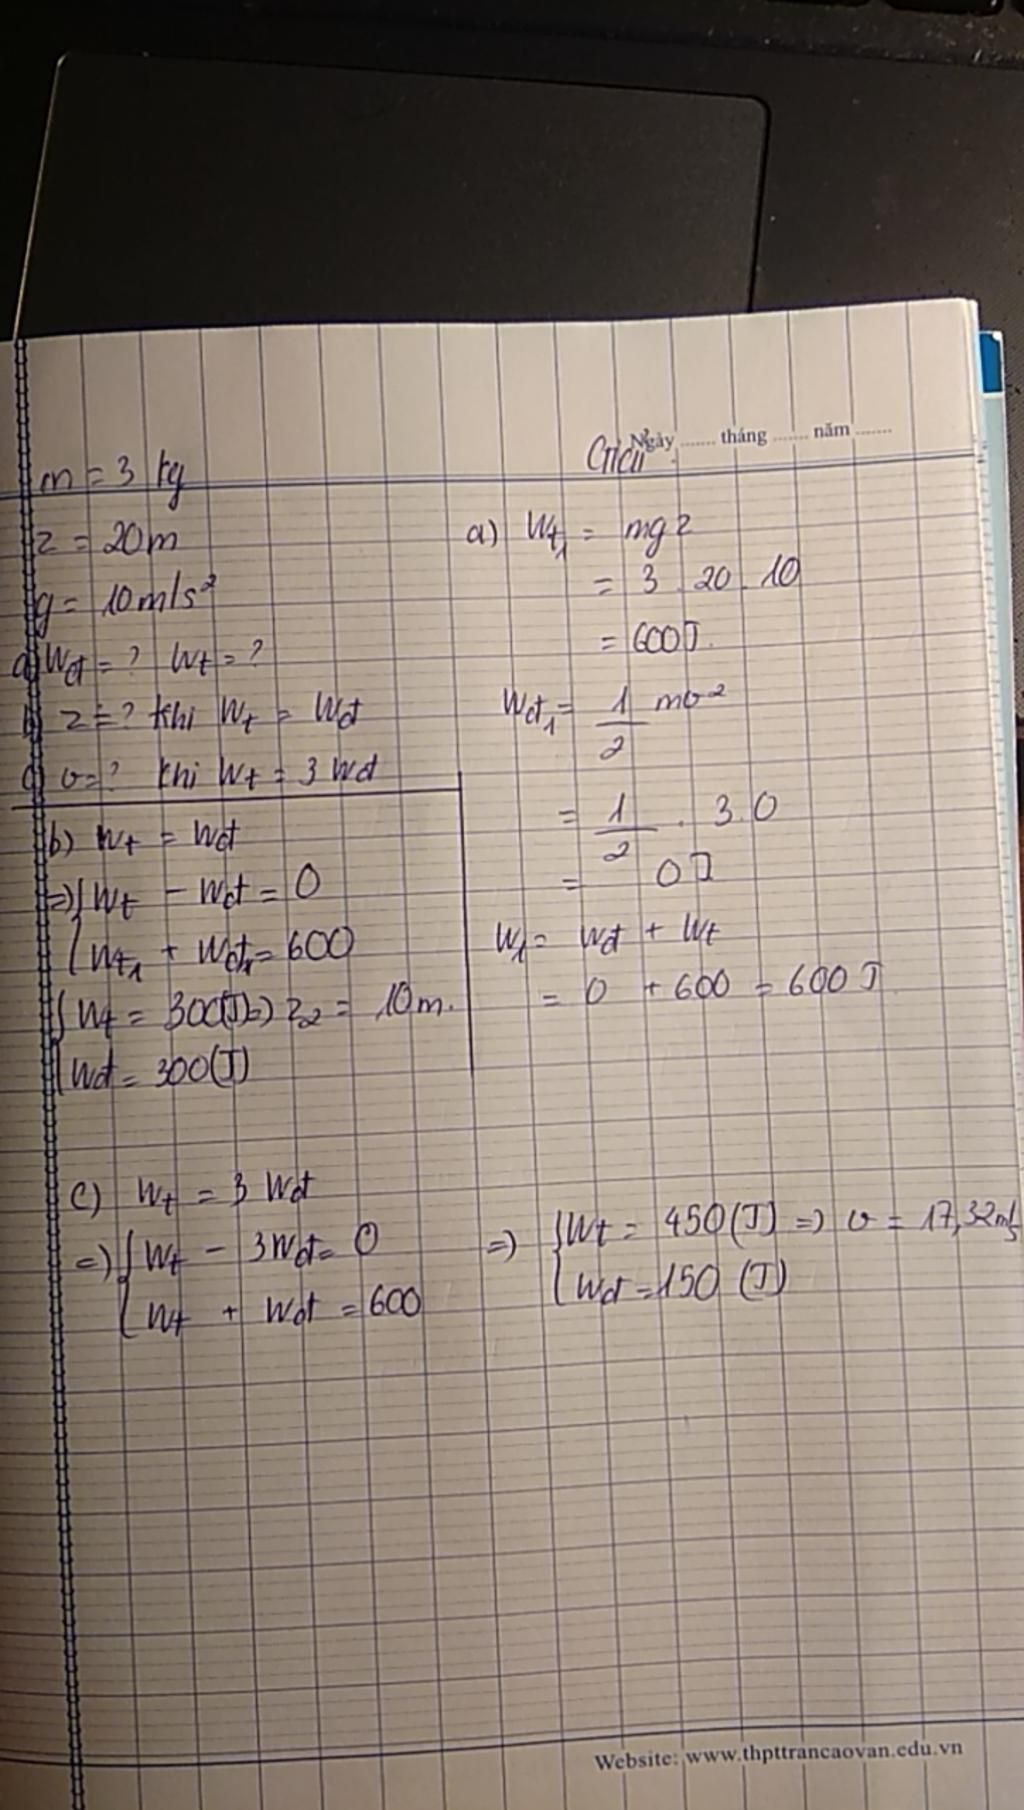 Ngày ....... tháng ....... năm .......
Giải
m = 3 kg
z = 20m
g = 10m/s²
a) Wđ = ? Wt = ?
b) z = ? khi Wt = Wđ
c) v = ? khi Wt = 3 Wđ
a) Wt₁ = mgz
= 3 . 20 . 10
= 600J.
Wđ₁ = 1/2 mv²
= 1/2 . 3.0
= 0J
W₁ = Wđ + Wt
= 0 + 600 = 600J
b) Wt = Wđ
=> { Wt - Wđ = 0
{ Wt₁ + Wđ₁ = 600
{ Wt = 300(J) => z₂ = 10m.
{ Wđ = 300(J)
c) Wt = 3 Wđ
=> { Wt - 3Wđ = 0
{ Wt + Wđ = 600
=> { Wt = 450(J) => v = 17,32m/s
{ Wđ = 150 (J)
Website: www.thpttrancaovan.edu.vn